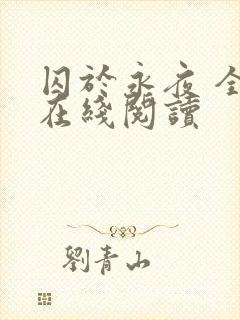 囚於永夜 全
在綫閱讀
劉青山